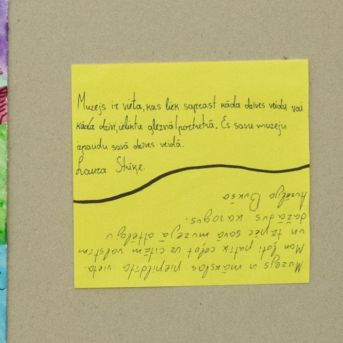 Muzejs ir vieta, kas liek saprast kāda dzīves veidu vai
kāda dzīvi, ieliktu gleznā/portretā. Es savu muzeju
apaudu savā dzīves veidā.
Laura Stūķe.
Muzejs ir mākslas piepildīta vieta.
Man ļoti patīk ceļot uz citām valstīm
un tāpēc savā muzejā attēloju
dažādus karogus.
Aurēlija Bukša